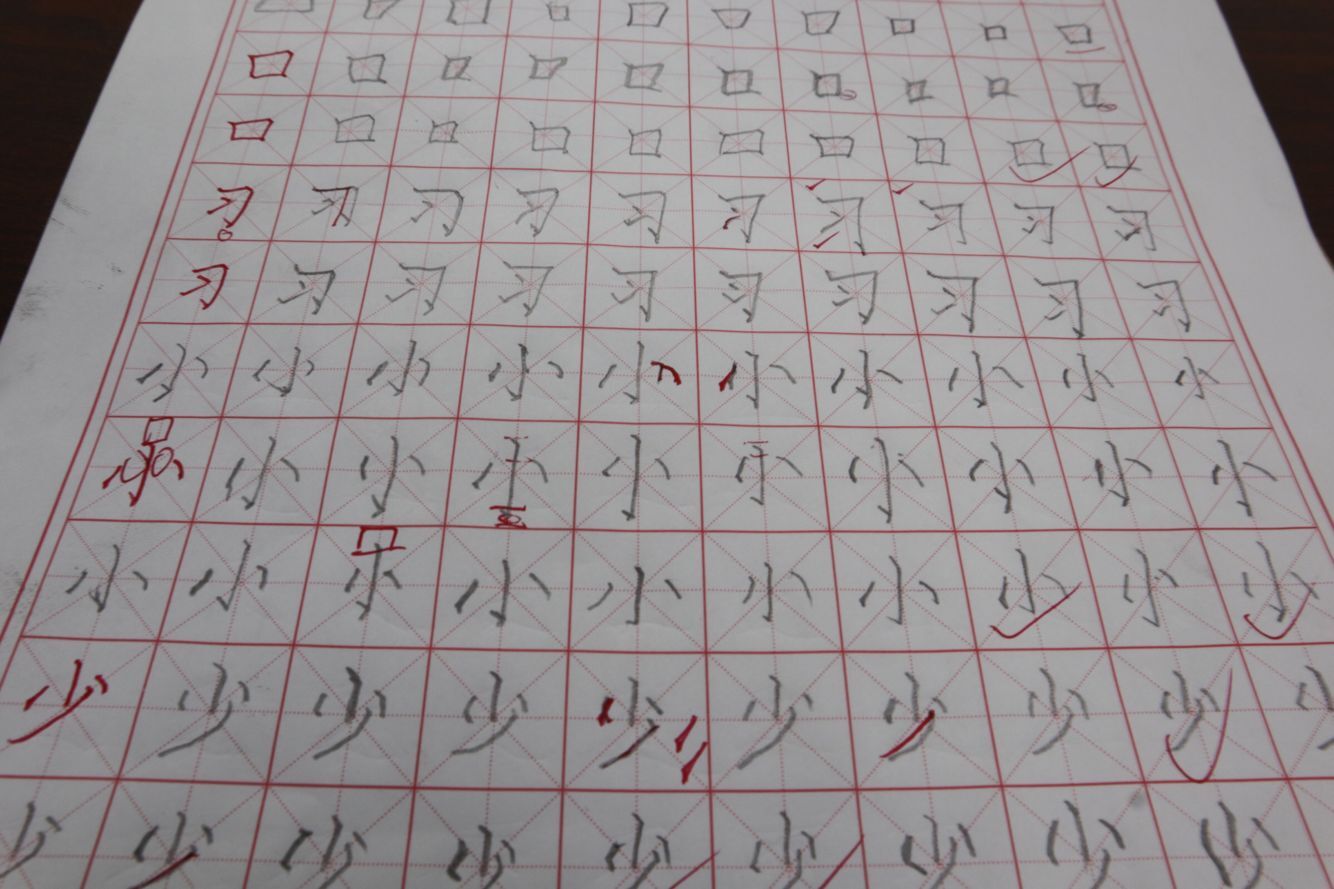 口口口口口口口口口口
口口口口口口口口口口
口口口口口口口口口口
习习习习习习习习习习
习习习习习习习习习习
小小小小小小小小小小
小小小小小小小小小小
小小小小小小小小小小
少少少少少少少少少少
少少少少少少少少少